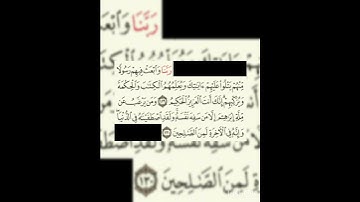 رَبَّنَا وَٱبۡعَ
رَبَّنَا وَٱبۡعَثۡ فِيهِمۡ رَسُولٗا
مِّنۡهُمۡ يَتۡلُواْ عَلَيۡهِمۡ ءَايَٰتِكَ وَيُعَلِّمُهُمُ ٱلۡكِتَٰبَ وَٱلۡحِكۡمَةَ
وَيُزَكِّيهِمۡۖ إِنَّكَ أَنتَ ٱلۡعَزِيزُ ٱلۡحَكِيمُ ١٢٩ وَمَن يَرۡغَبُ عَن
مِّلَّةِ إِبۡرَٰهِـۧمَ إِلَّا مَن سَفِهَ نَفۡسَهُۥۚ وَلَقَدِ ٱصۡطَفَيۡنَٰهُ فِي ٱلدُّنۡيَاۖ
وَإِنَّهُۥ فِي ٱلۡأٓخِرَةِ لَمِنَ ٱلصَّٰلِحِينَ ١٣٠
سَفِهَ نَفۡسَهُۥۚ وَلَقَدِ
ةِ لَمِنَ ٱلصَّٰلِحِينَ ١٣٠